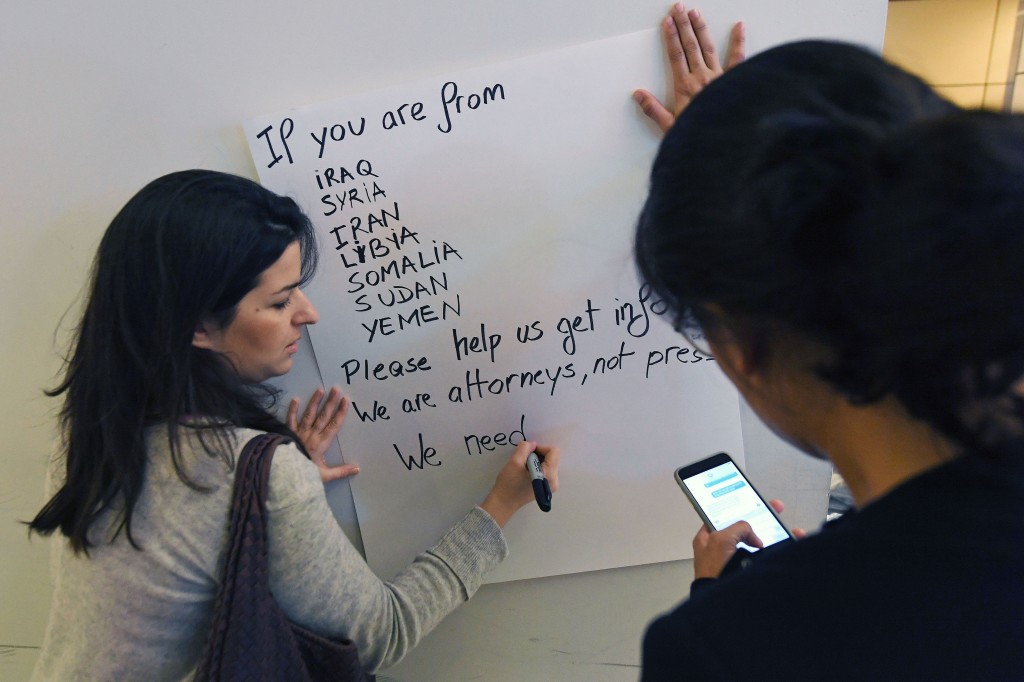 If you are from
iRAQ
SYRiA
IRAN
LYBYA
SOMALiA
SUDAN
YEMEN
Please help us get info
We are attorneys, not press
We need